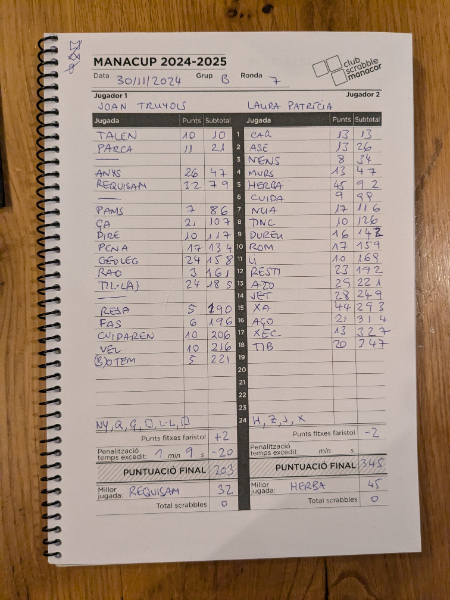 MANACUP 2024-2025
club scrabble manacor
Data 30/11/2024 Grup B Ronda 7
Jugador 1 Jugador 2
JOAN TRUYOLS LAURA PATRÍCIA
Jugada Punts Subtotal Jugada Punts Subtotal
TALEN 10 10 1 CAR 13 13
PARCA 11 21 2 ASE 13 26
— 3 NENS 8 34
ANYS 26 47 4 MURS 13 47
REQUISAM 32 79 5 HERBA 45 92
— 6 CUIDA 9
PAMS 7 86 7 NUA 17 116
ÇA 21 107 8 TINC 10 126
DIRE 10 117 9 DUREU 16 142
PCNA 17 134 10 ROM 17 159
GEOLEG 24 158 11 LI 10 169
RAO 3 161 12 RESTI 23 192
TIL·LA) 24 185 13 AZO 29 221
— 14 JET 28 249
RESA 5 190 15 XA 44 293
FAS 6 196 16 AGO 21 314
CUIDAREN 10 206 17 XEC 13 327
VEL 10 216 18 TIB 20 347
(B)OTEM 5 221 19
20
21
22
23
NY, Q, Ç, Q, L·L, Q 24 H, Z, J, X
Punts fitxes faristol +2 Punts fitxes faristol -2
Penalització temps excedit: 1 min 9 s -20 Penalització temps excedit: min s
PUNTUACIÓ FINAL 203 PUNTUACIÓ FINAL 345
Millor jugada: REQUISAM 32 Millor jugada: HERBA 45
Total scrabbles 0 Total scrabbles 0